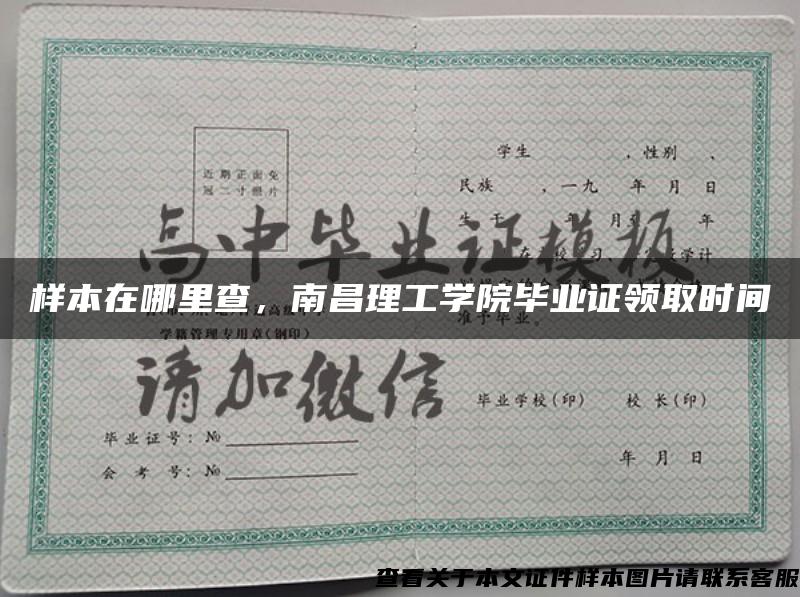 近期正面免
冠二寸照片
学籍管理专用章(钢印)
毕业证号: №
会考号: №
学生 ,性别 、
民族 ,一九 年 月 日
生于 年 月至 年
准予毕业。
毕业学校(印) 校长(印)
年 月 日
高中毕业证模板
请加微信
样本在哪里查，南昌理工学院毕业证领取时间
查看关于本文证件样本图片请联系客服